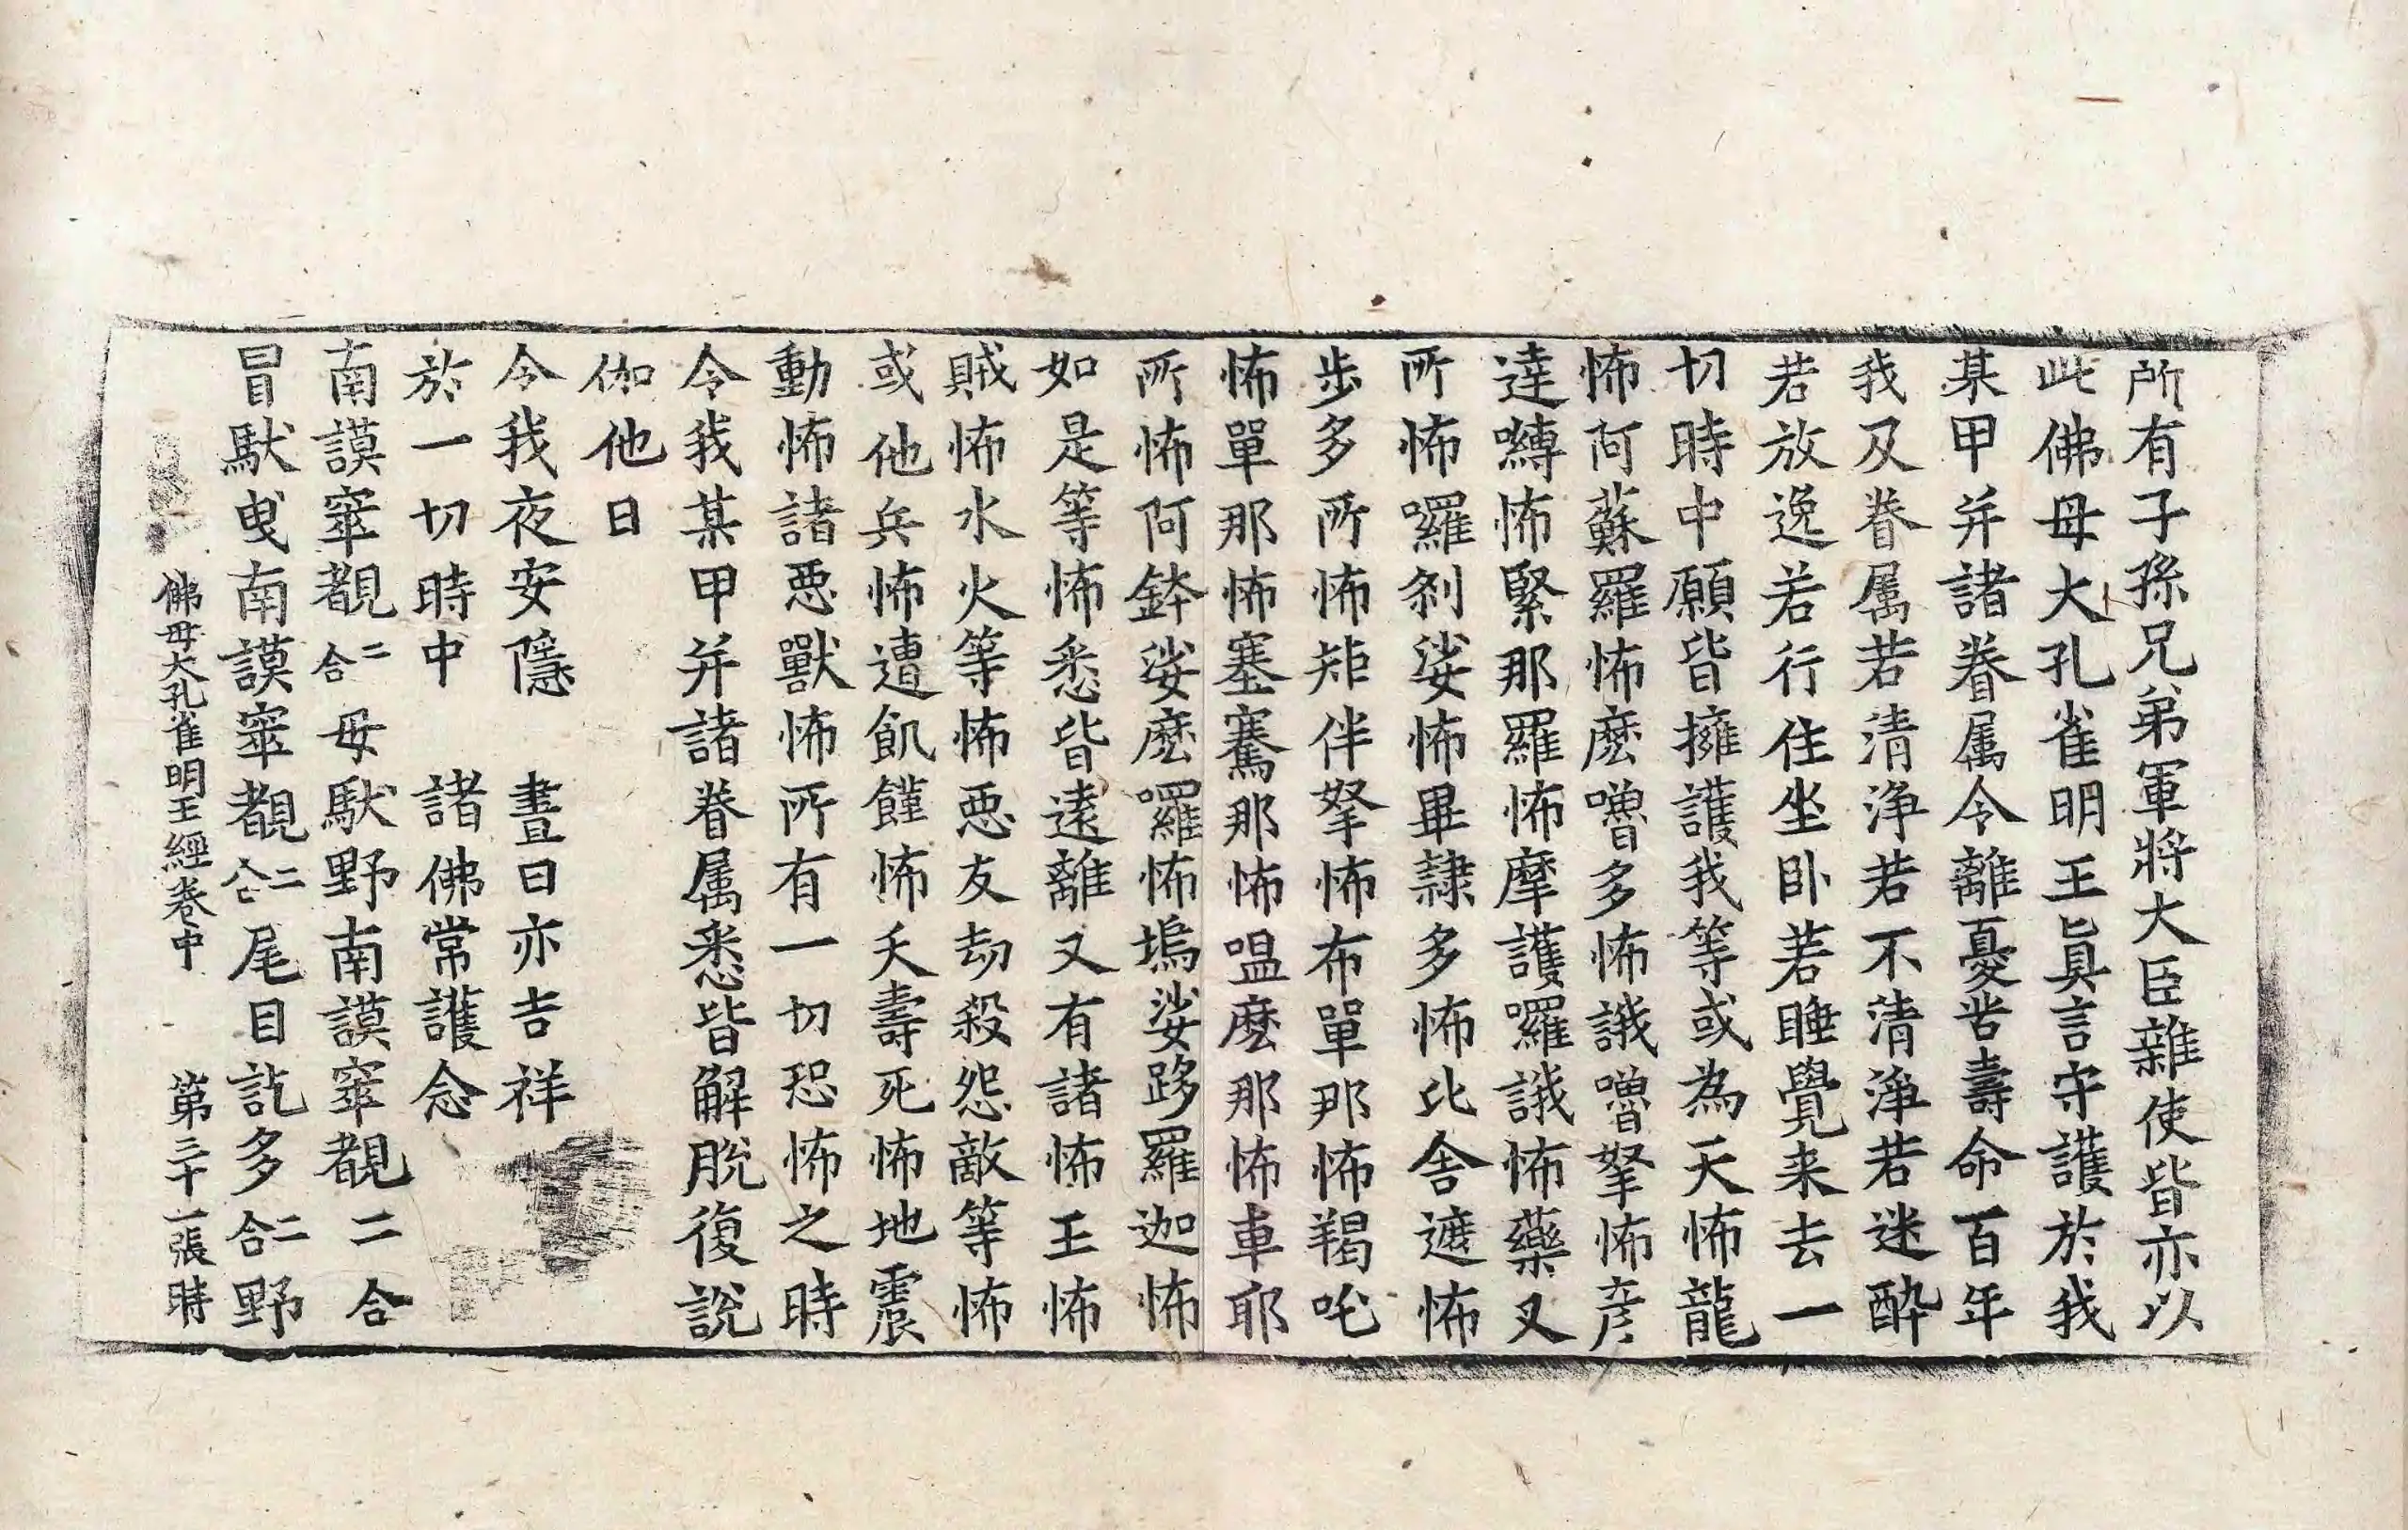 所有子孫兄弟軍將大臣雜使皆亦以
此佛母大孔雀明王眞言守護於我
某甲并諸眷属令離憂苦壽命百年
我及眷属若清淨若不清淨若迷醉
若放逸若行住坐卧若睡覺来去一
切時中願皆擁護我等或為天怖龍
怖阿蘇羅怖麽嚕多怖誐嚕拏怖彦
達嚩怖緊那羅怖摩護囉誐怖藥叉
所怖囉刹娑怖畢隷多怖比舍遮怖
步多所怖矩伴拏怖布單那怖羯吒
怖單那怖塞騫那怖嗢麽那怖車耶
所怖阿鉢娑麽囉怖塢娑跢羅迦怖
如是等怖悉皆遠離又有諸怖王怖
賊怖水火等怖惡友劫殺怨敵等怖
或他兵怖遭飢饉怖夭壽死怖地震
動怖諸惡獸怖所有一切恐怖之時
令我某甲并諸眷属悉皆解脫復說
伽他曰
令我夜安隱　晝日亦吉祥
於一切時中　諸佛常護念
南謨窣覩二合母馱野南謨窣覩二合
冒馱曵南謨窣覩二合尾目訖多二合野
佛母大孔雀明王經卷中　第三十一張時